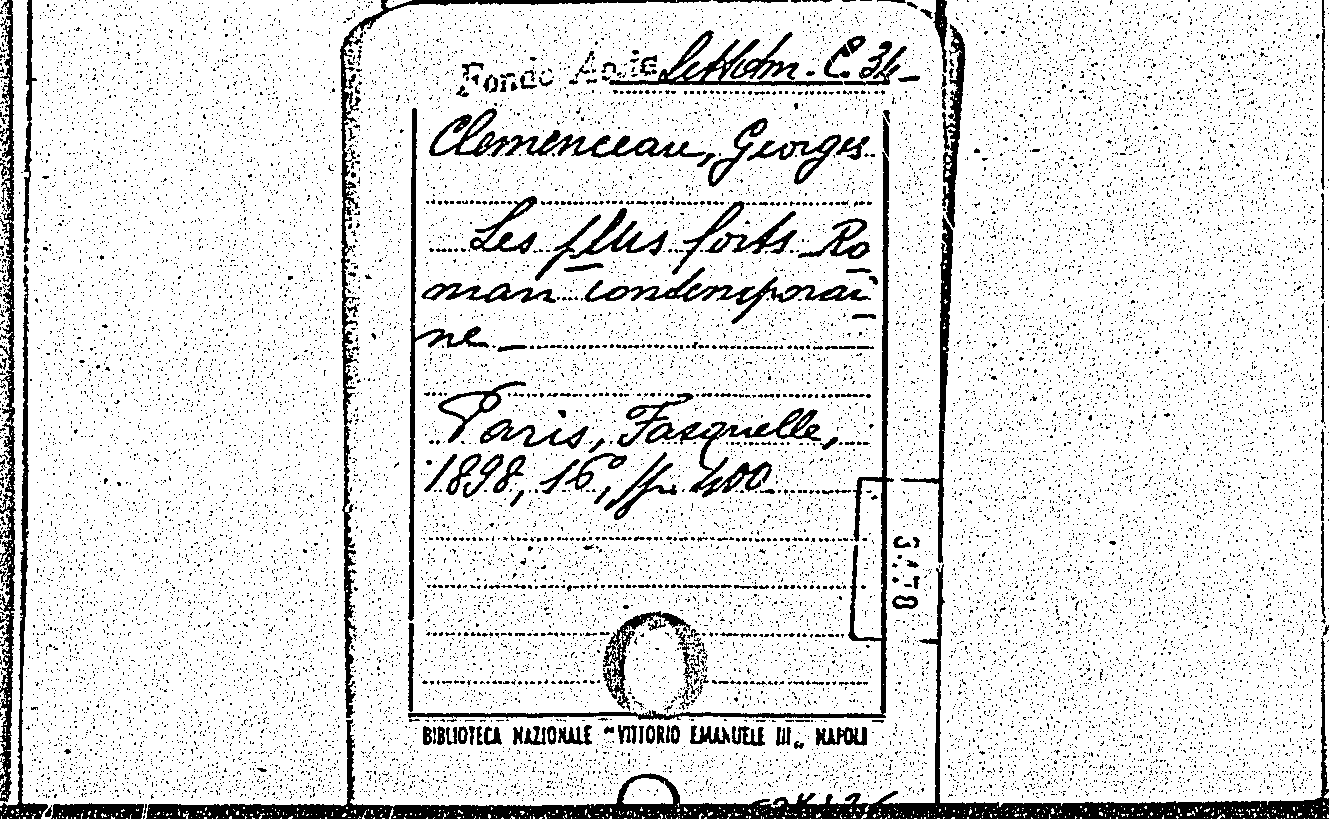 Fondo
C. 34
Clemenceau, Georges
Les plus forts Ro
man contemporai
ne
Paris, Fasquelle,
1898, 16°, pp. 400
BIBLIOTECA NAZIONALE "VITTORIO EMANUELE III„ NAPOLI